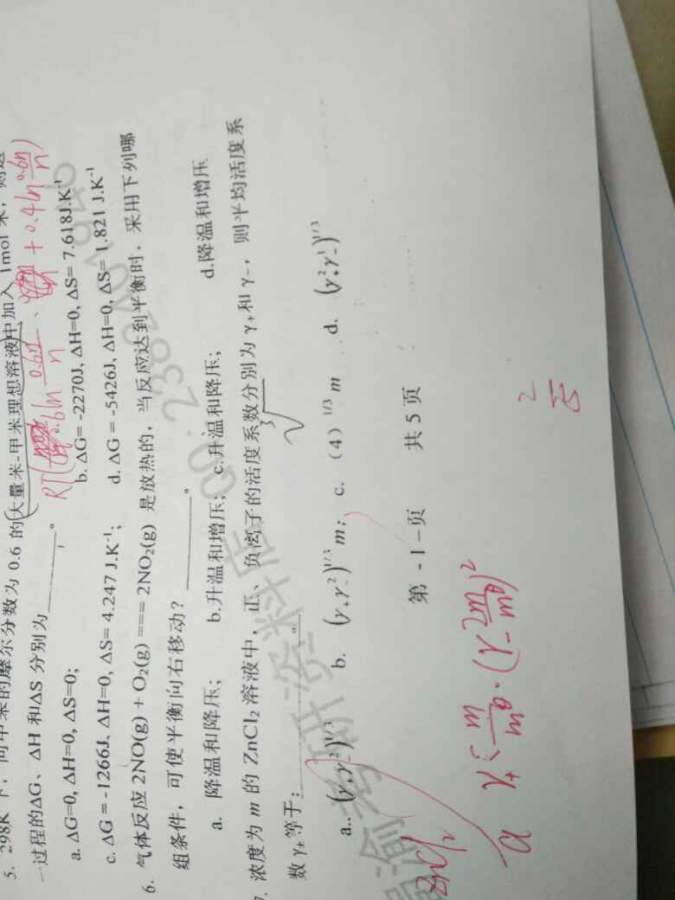 5. 298K 下,向甲苯的摩尔分数为 0.6 的大量苯-甲苯理想溶液中加入 1mol 苯,
一过程的ΔG、ΔH 和ΔS 分别为______。
a. ΔG=0, ΔH=0, ΔS=0; b. ΔG= -2270J, ΔH=0, ΔS= 7.618J.K⁻¹
c. ΔG = -1266J, ΔH=0, ΔS= 4.247 J.K⁻¹; d. ΔG = -5426J, ΔH=0, ΔS= 1.821 J.K⁻¹
6. 气体反应 2NO(g) + O₂(g) === 2NO₂(g) 是放热的,当反应达到平衡时,采用下列哪
组条件,可使平衡向右移动?______。
a. 降温和降压; b.升温和增压; c.升温和降压; d.降温和增压
浓度为 m 的 ZnCl₂ 溶液中,正、负离子的活度系数分别为 γ₊和 γ₋,则平均活度系
数 γ± 等于:______。
a. b. m; c. (4)¹/³ m d.
第 - 1 - 页 共 5 页
ZnCl₂